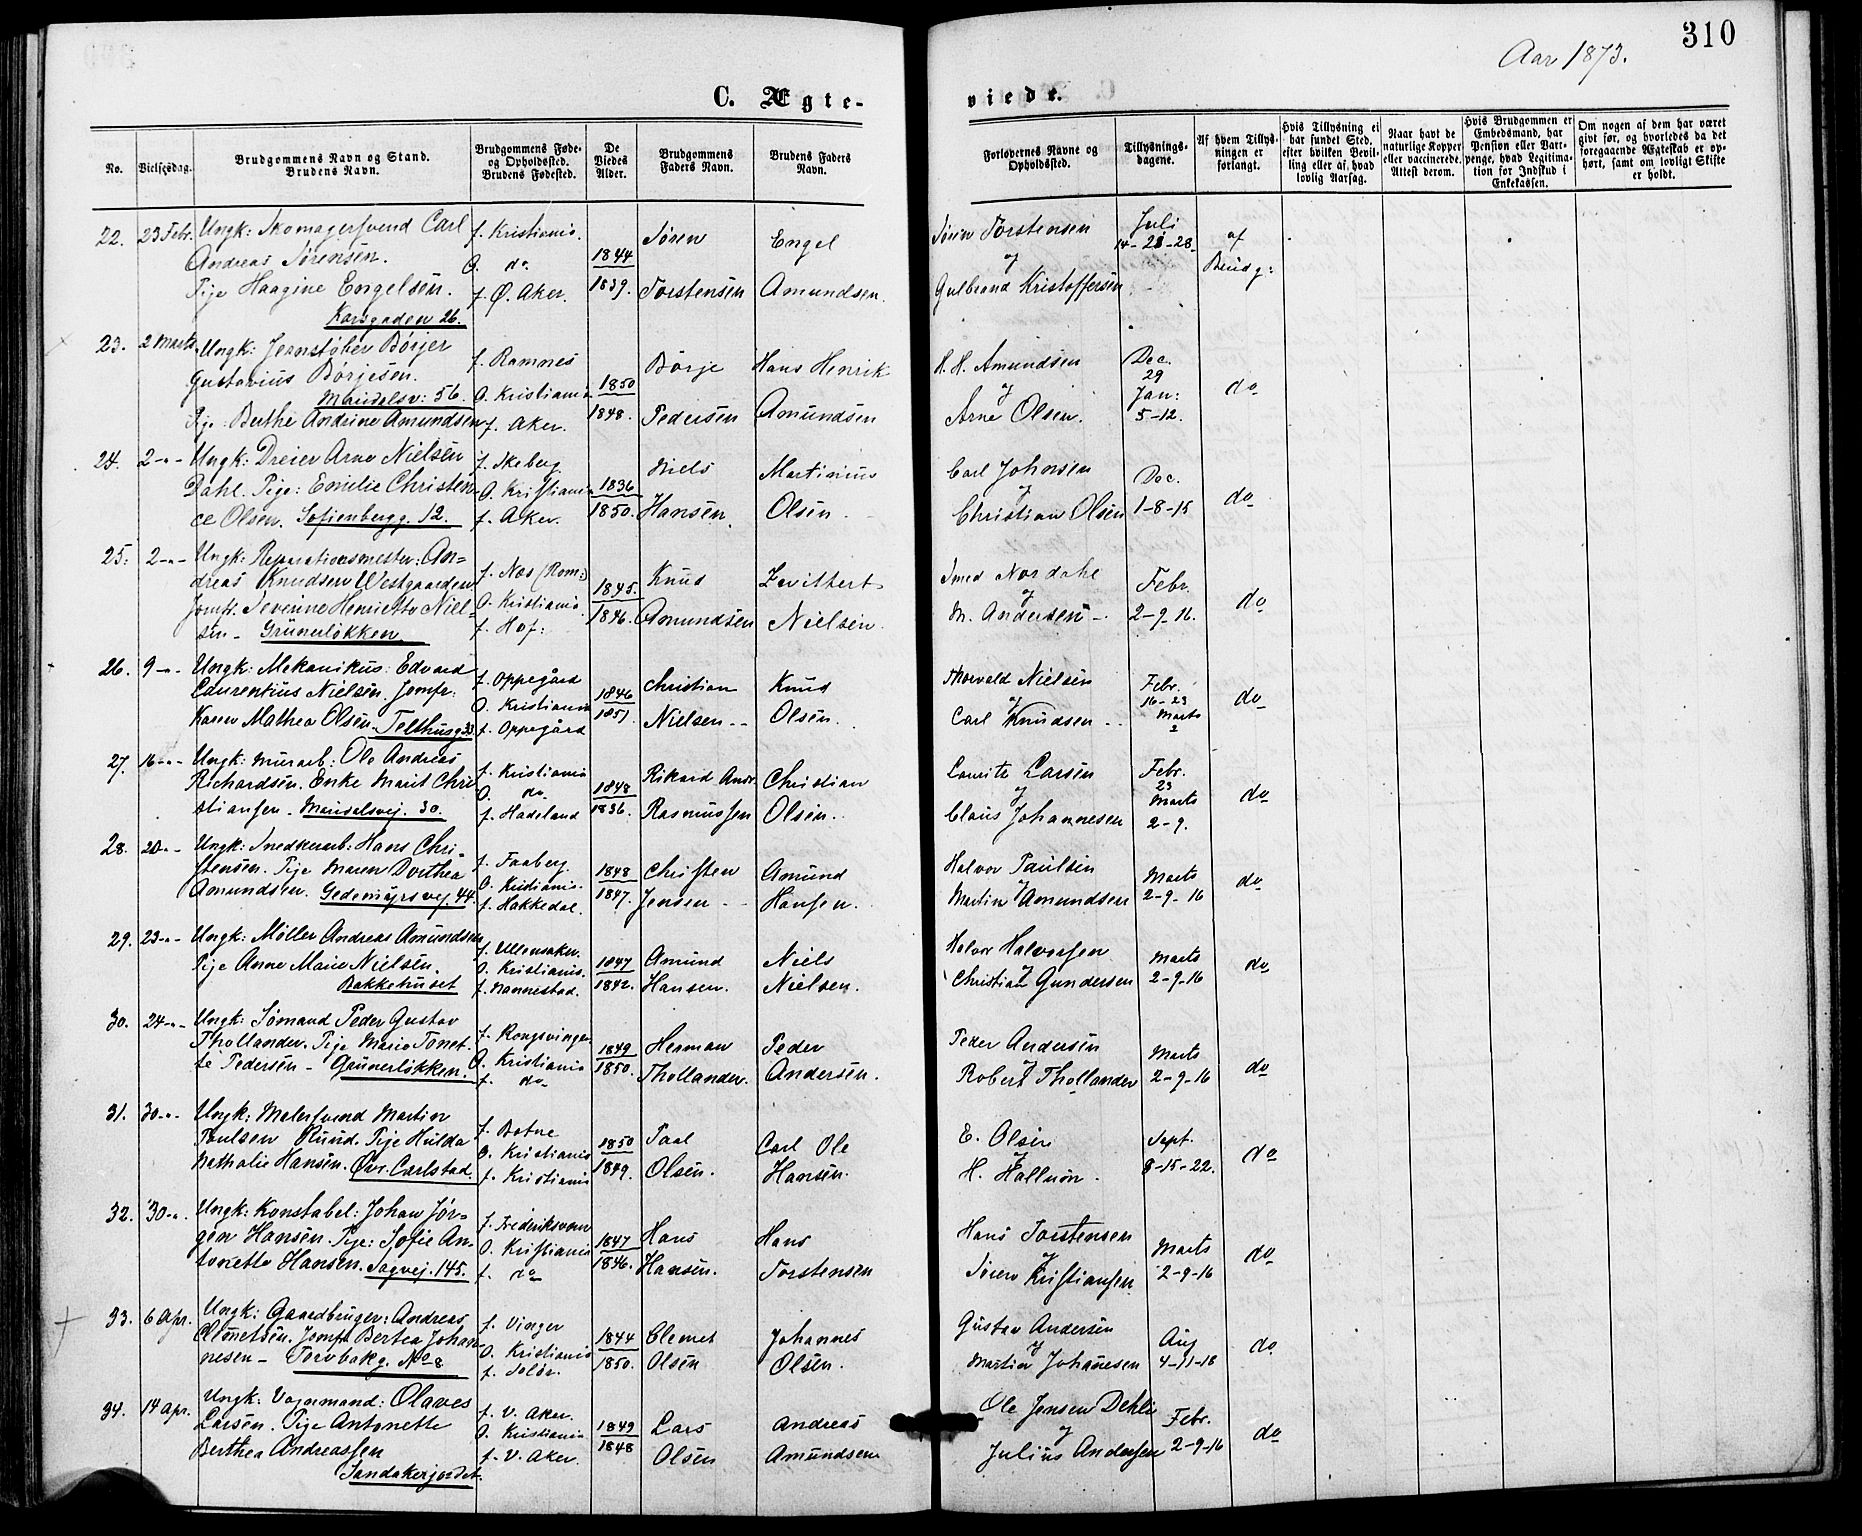 310
Aar 1873.
C. Ægte-
viede.
No.
Vielsesdag.
Brudgommens Navn og Stand.
Brudens Navn.
Brudgommens Føde-
og Opholdsted.
Brudens Fødested.
De
Viedes
Alder.
Brudgommens
Faders Navn.
Brudens Faders
Navn.
Forlovernes Navne og
Opholdssted.
Tillysnings-
dagene.
Af hvem Tillys-
ningen er
forlangt.
Hvis Tillysning ei
har fundet Sted,
efter hvilken Bevil-
ling eller af hvad
lovlig Aarsag.
Naar havt de
naturlige Kopper
eller vaccinerede.
Attest derom.
Hvis Brudgommen er
Embedsmand, har
Pension eller Vart-
penge, hvad Legitima-
tion for Indskud i
Enkekassen.
Om nogen af dem har været
givt før, og hvorledes da det
foregaaende Ægteskab er op-
hørt, samt om lovligt Skifte
er holdt.
22. 23 Febr. Ungk: Skomagersvend Carl f. Kristiania. Søren Engel Søren Torstensen Juli af
Andreas Sørensen. O. do. 1844 og 14-21-28. Brudg:
Pige Haagine Engelsen. f. Ø. Aker. 1839. Torstensen Amundsen. Gulbrand Kristoffersen
Korsgaden 26.
23. 2 Marts Ungk: Jernstøber Börjer f. Ramnes Börje Hans Henrik H. H. Amundsen Dec.
Gustavius Börjesen. 1850 og 29 do
Maridalsv: 56. O. Kristiania Jan:
Pige: Berthe Andrine Amundsen f. Aker. 1848. Pedersen Amundsen Arne Olsen. 5-12.
24. 2-"- Ungk: Dreier Arne Nielsen f. Skeberg Niels Martinius Carl Johnsen Dec.
Dahl. Pige: Emilie Christen- O. Kristiania 1836 og do
ce Olsen. Sofienbergg. 12. f. Aker. 1850. Hansen Olsen Christian Olsen 1-8-15
25. 2-"- Ungk: Reparationsmester: An=
dreas Knudsen Westgaarden f. Næs (Rom:) 1845. Knud Nordahl Febr.
Jomfr. Severine Henriette Niel- O. Kristiania og do
sen - Grünerløkken f. Hof: 1846. Amundsen Nielsen. M. Andersen 2-9-16.
26. 9-"- Ungk: Mekanikus: Edvard f. Oppegård Christian Knud Thorvald Nielsen Febr.
Laurentius Nielsen. Jomfr: O. Kristiania 1846 og 16-23 do
Karen Mathea Olsen. Telthusg 33 f. Oppegård 1851. Nielsen Olsen. Carl Knudsen Marts
2
27. 16-"- Ungk: Murarb: Ole Andreas f. Kristiania Rikard Andr. Christian Lauritz Larsen Febr.
Richardsen. Enke Marit Chri O. do. 1848 og 23 do
stiansen - Maridalsvej. 30. f. Hadeland 1836. Rasmussen Olsen. Claus Johannesen Marts
2-9.
28. 20-"- Ungk: Snedkerarb: Hans Chri- f. Faaberg. Christen Amund Halvor Paulsen Marts
stensen. Pige Maren Dorthea O. Kristiania. 1848 og do
Amundsen. Gedemyrsvej 44. f. Hakkedal. 1847. Jensen Hansen. Martin Amundsen 2-9-16
29. 23-"- Ungk: Møller Andreas Amundsen f. Ullensaker. Amund Niels Halvor Halvorsen Marts
Pige Anne Marie Nielsen. O. Kristiania. 1847 og do
Bakkehuset f. Nannestad. 1842. Hansen. Nielsen. Christian Gundersen 2-9-16
30. 24-"- Ungk: Sømand Peder Gustav f. Kongsvinger Herman Peder Peder Andersen Marts
Thollander. Pige Marie Tonet- O. Kristiania 1849 og do
te Pedersen - Grünerløkken. f. do 1850. Thollander. Andersen. Robert Thollander 2-9-16
31. 30-"- Ungk: Malersvend Martin f. Botne Paal Carl Ole E. Olsen Sept.
Paulsen Rund. Pige Hulda O. Kristiania 1850 og do
Nathalie Hansen. Øvr. Carlstad. f. Kristiania 1849. Olsen. Hansen. H. 8-15-22.
32. 30-"- Ungk: Konstabel: Johan Jør= f. Frederiksværn Hans Hans Hans Torstensen Marts
gen Hansen. Pige: Sofie An- O. Kristiania 1847 og do
tonette Hansen. Sagvej. 145. f. do 1846. Hansen. Torstensen Søren Kristiansen. 2-9-16
33. 6 Apr. Ungk: Gaardbruger: Andreas f. Vinger Clemet Johannes Gustav Andersen Aug
Clemetsen. Jomfr Bertea Johan O. Kristiania 1844 og do
nesen - Torvbakg. No 8 f. Solør. 1850. Olsen Olsen. Martin Johanesen 4-11-18
34. 14 Apr. Ungk: Vognmand: Olaves f. V. Aker. Lars Andreas Ole Jensen Dehli Febr.
Larsen. Pige Antonette O. Kristiania 1849 og do
Berthea Andreassen f. V. Aker. 1848 Olsen Amundsen Julius Andersen 2-9-16
Sandakerjordet.